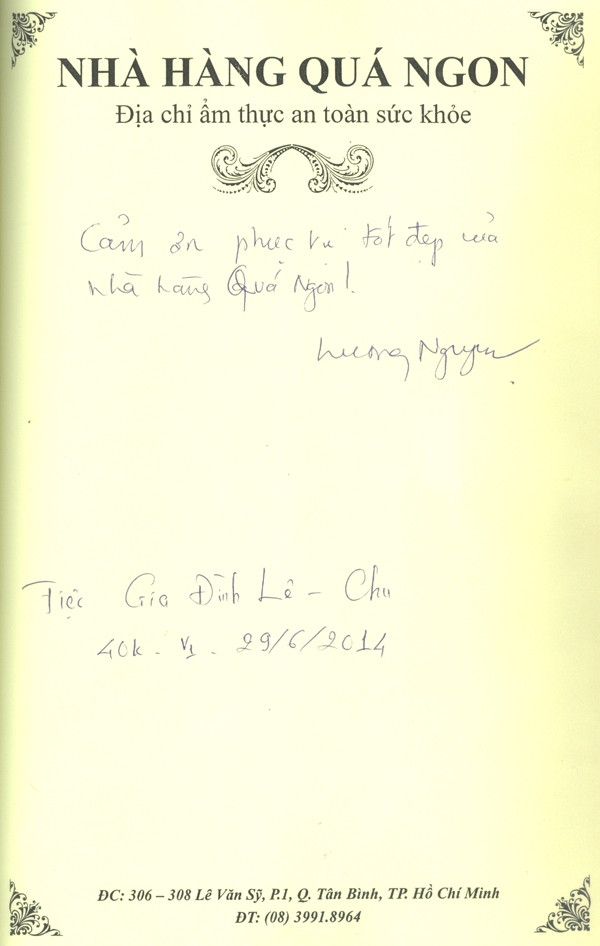 NHÀ HÀNG QUÁ NGON
Địa chỉ ẩm thực an toàn sức khỏe
Cảm ơn phục vụ tốt đẹp của
nhà hàng Quá Ngon!
Lương Nguyên
Tiệc Gia Đình Lê - Chu
40k - V1 - 29/6/2014
ĐC: 306 – 308 Lê Văn Sỹ, P.1, Q. Tân Bình, TP. Hồ Chí Minh
ĐT: (08) 3991.8964